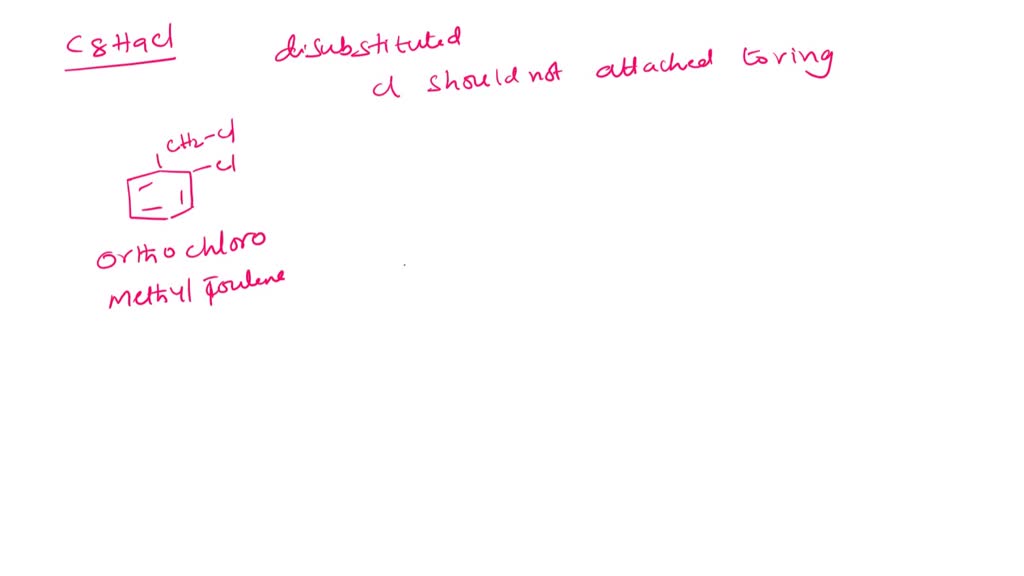 C8H9Cl
disubstituted
Cl should not attached to ring
CH2-Cl
-Cl
Ortho chloro
Methyl Toulene